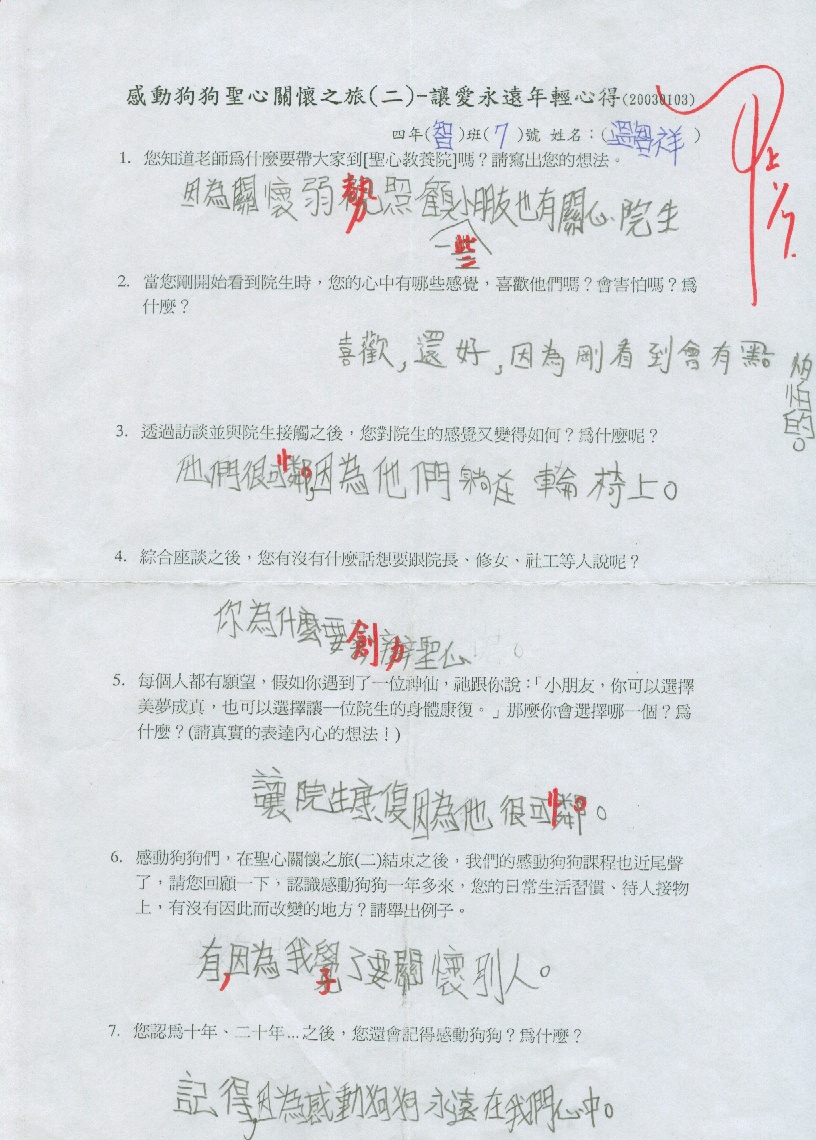 感動狗狗聖心關懷之旅(二)-讓愛永遠年輕心得(20030103)
四年(智)班(7)號 姓名：(溫智祥)
甲上 1/7.
1. 您知道老師為什麼要帶大家到[聖心教養院]嗎？請寫出您的想法。
因為關懷弱勢照顧一些小朋友也有關心院生
2. 當您剛開始看到院生時，您的心中有哪些感覺，喜歡他們嗎？會害怕嗎？為
什麼？
喜歡，還好，因為剛看到會有點
怕怕的。
3. 透過訪談並與院生接觸之後，您對院生的感覺又變得如何？為什麼呢？
他們很可憐，因為他們躺在輪椅上。
4. 綜合座談之後，您有沒有什麼話想要跟院長、修女、社工等人說呢？
你為什麼要創辦聖心
5. 每個人都有願望，假如你遇到了一位神仙，祂跟你說：「小朋友，你可以選擇
美夢成真，也可以選擇讓一位院生的身體康復。」那麼你會選擇哪一個？為
什麼？(請真實的表達內心的想法！)
讓院生康復因為他很可憐。
6. 感動狗狗們，在聖心關懷之旅(二)結束之後，我們的感動狗狗課程也近尾聲
了，請您回顧一下，認識感動狗狗一年多來，您的日常生活習慣、待人接物
上，有沒有因此而改變的地方？請舉出例子。
有，因為我學了要關懷別人。
7. 您認為十年、二十年...之後，您還會記得感動狗狗？為什麼？
記得，因為感動狗狗永遠在我們心中。